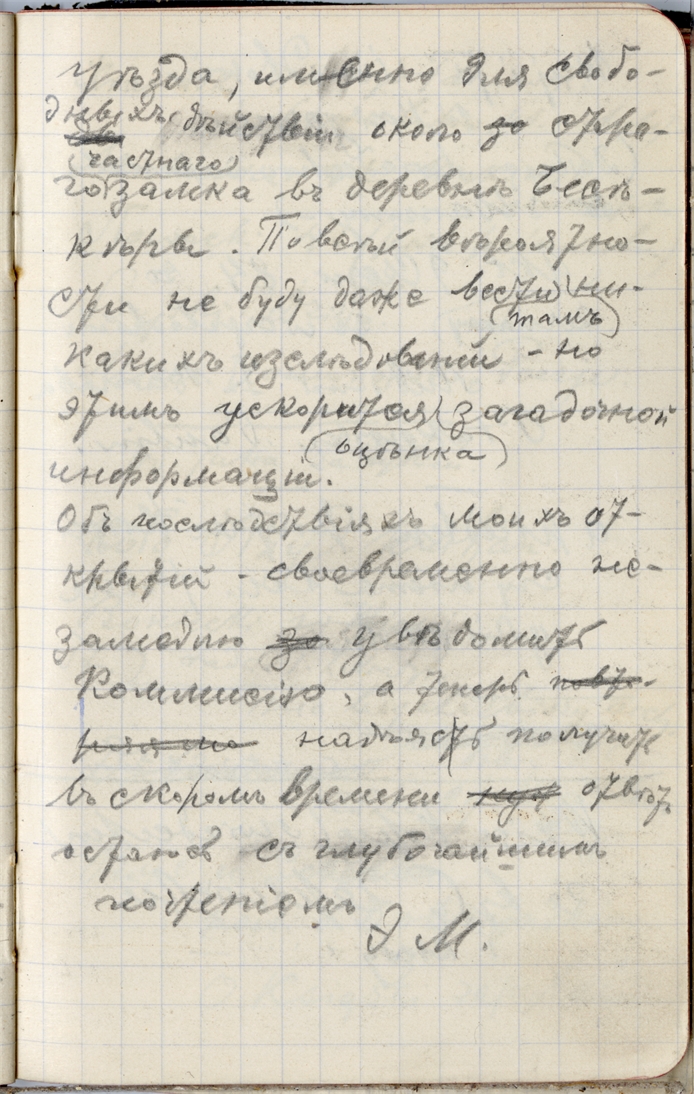 уѣзда, именно для свобо-
дныхъ дѣйствій около зо стра-
(частнаго)
го замка въ деревнѣ Бесѣ-
кѣрви. По всей вѣроятно-
сти не буду даже вести ни-
(тамъ)
какихъ изслѣдованій - но
этимъ ускорится загадочной
(оцѣнка)
информаціи.
Объ послѣдствіяхъ моихъ от-
крытій - своевременно не-
замедлю зо увѣдомить
Коммисію, а теперь
надѣясь получить
въ скоромъ времени отвѣтъ
остаюсь съ глубочайшимъ
почтеніемъ
Э М.